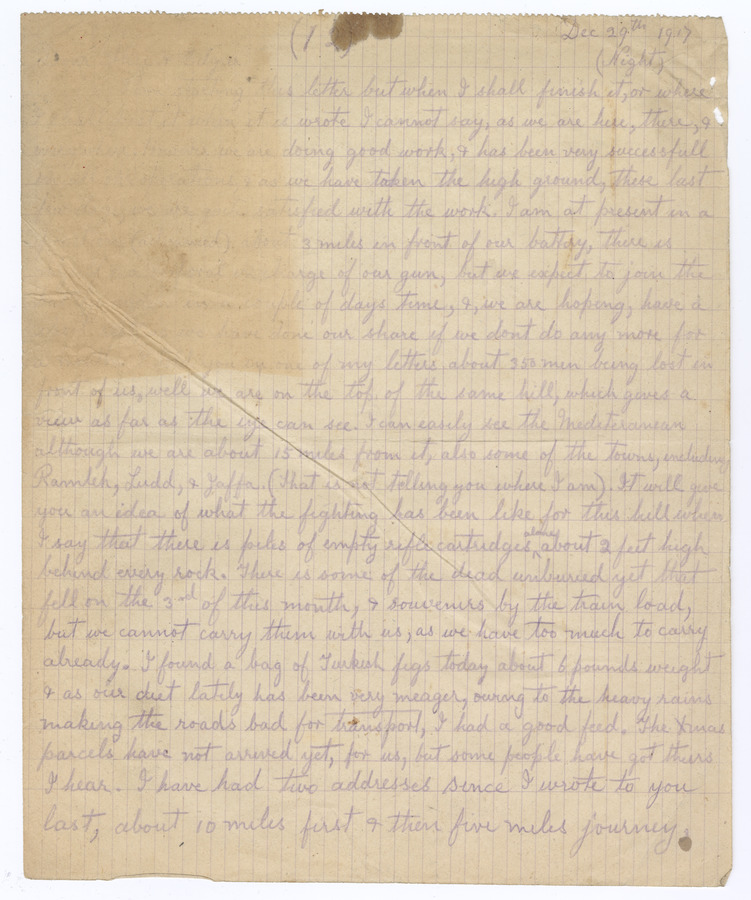 (1 Dec 29th 1917
(Night)
this letter but when I shall finish it, or where
it is wrote I cannot say, as we are here, there, &
we are doing good work, & has been very successfull
as we have taken the high ground, these last
satisfied with the work. I am at present in a
about 3 miles in front of our battery, there is
charge of our gun, but we expect to join the
couple of days time, &, we are hoping, have a
we have done our share if we dont do any more for
one of my letters about 350 men being lost in
front of us, well we are on the top of the same hill, which gives a
view as far as the eye can see. I can easily see the Mediteranean
although we are about 15 miles from it, also some of the towns, including
Ramleh, Ludd, & Jaffa. (That is not telling you where I am). It will give
you an idea of what the fighting has been like for this hill when
I say that there is piles of empty rifle cartridges alone about 2 feet high
behind every rock. There is some of the dead unburied yet that
fell on the 3rd of this month, & souvenirs by the train load,
but we cannot carry them with us, as we have too much to carry
already. I found a bag of Turkish figs today about 6 pounds weight
& as our diet lately has been very meager, owing to the heavy rains
making the roads bad for transport, I had a good feed. The Xmas
parcels have not arrived yet, for us, but some people have got theirs
I hear. I have had two addresses since I wrote to you
last, about 10 miles first & then five miles journey.